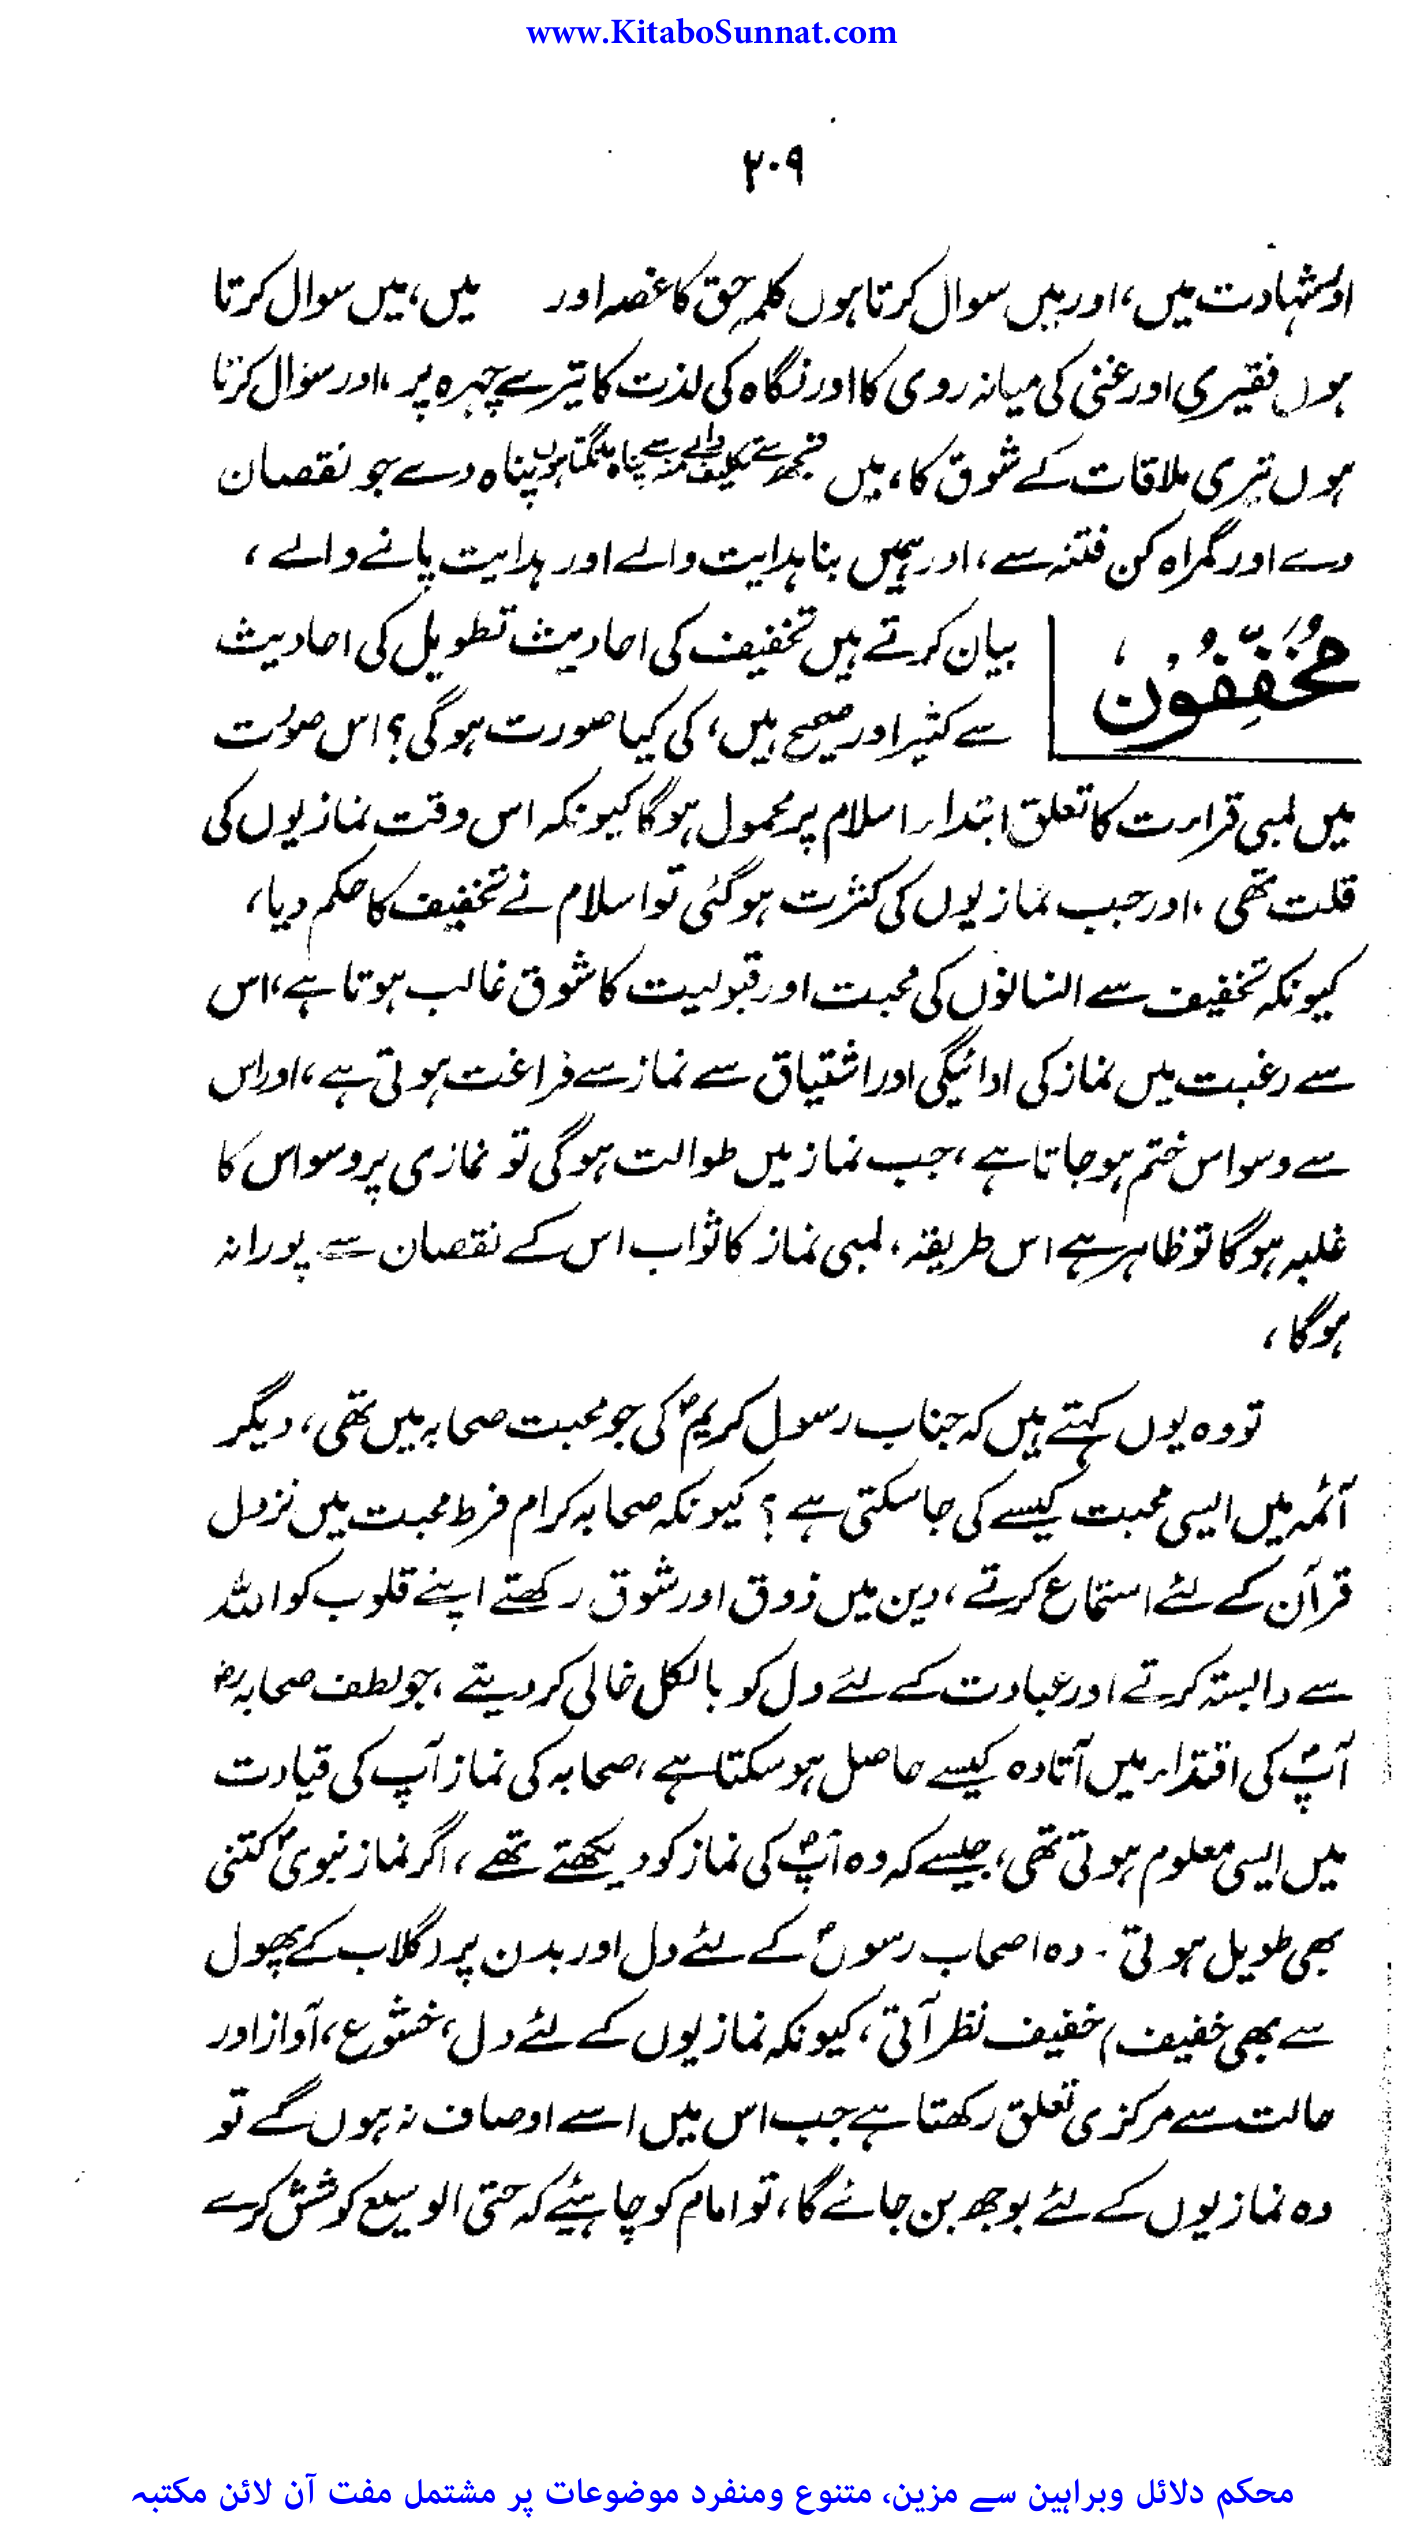 www.KitaboSunnat.com
۲۰۹
اور شہادت میں، اور میں سوال کرتا ہوں کلمہ حق کا غصہ اور میں، میں سوال کرتا
ہوں فقیری اور غنیٰ کی میانہ روی کا اور نگاہ کی لذت کا تیرے چہرہ پر، اور سوال کرتا
ہوں تیری ملاقات کے شوق کا، میں تجھ سے تکلیف والے سے پناہ مانگتا ہوں پناہ دے جو نقصان
دے اور گمراہ کن فتنہ سے، اور ہمیں بنا ہدایت والے اور ہدایت پانے والے،
مُخَفِّفُونَ، بیان کرتے ہیں تخفیف کی احادیث تطویل کی احادیث
سے کثیر اور صحیح ہیں، کی کیا صورت ہوگی؟ اس صورت
میں لمبی قراءت کا تعلق ابتداء اسلام پر محمول ہوگا کیونکہ اس وقت نمازیوں کی
قلت تھی، اور جب نمازیوں کی کثرت ہوگئی تو اسلام نے تخفیف کا حکم دیا،
کیونکہ تخفیف سے انسانوں کی محبت اور قبولیت کا شوق غالب ہوتا ہے، اس
سے رغبت میں نماز کی ادائیگی اور اشتیاق سے نماز سے فراغت ہوتی ہے، اور اس
سے وسواس ختم ہو جاتا ہے، جب نماز میں طوالت ہوگی تو نمازی پر وسواس کا
غلبہ ہوگا تو ظاہر ہے اس طریقہ، لمبی نماز کا ثواب اس کے نقصان سے پورا نہ
ہوگا،
تو وہ یوں کہتے ہیں کہ جناب رسول کریمؐ کی جو محبت صحابہ میں تھی، دیگر
آئمہ میں ایسی محبت کیسے کی جا سکتی ہے؟ کیونکہ صحابہ کرام فرط محبت میں نزول
قرآن کے لئے استماع کرتے، دین میں ذوق اور شوق رکھتے اپنے قلوب کو اللہ
سے وابستہ کرتے اور عبادت کے لئے دل کو بالکل خالی کر دیتے، جو لطف صحابہؓ
آپؐ کی اقتداء میں آتا وہ کیسے حاصل ہو سکتا ہے، صحابہ کی نماز آپ کی قیادت
میں ایسی معلوم ہوتی تھی، جیسے کہ وہ آپؐ کی نماز کو دیکھتے تھے، اگر نماز نبویؐ کتنی
بھی طویل ہوتی۔ وہ اصحاب رسولؐ کے لئے دل اور بدن پر (گلاب کے پھول
سے بھی خفیف) خفیف نظر آتی، کیونکہ نمازیوں کے لئے دل، خشوع، آواز اور
حالت سے مرکزی تعلق رکھتا ہے جب اس میں اسے اوصاف نہ ہوں گے تو
وہ نمازیوں کے لئے بوجھ بن جائے گا، تو امام کو چاہیئے کہ حتی الوسیع کوشش کرے
محکم دلائل وبراہین سے مزین، متنوع ومنفرد موضوعات پر مشتمل مفت آن لائن مکتبہ